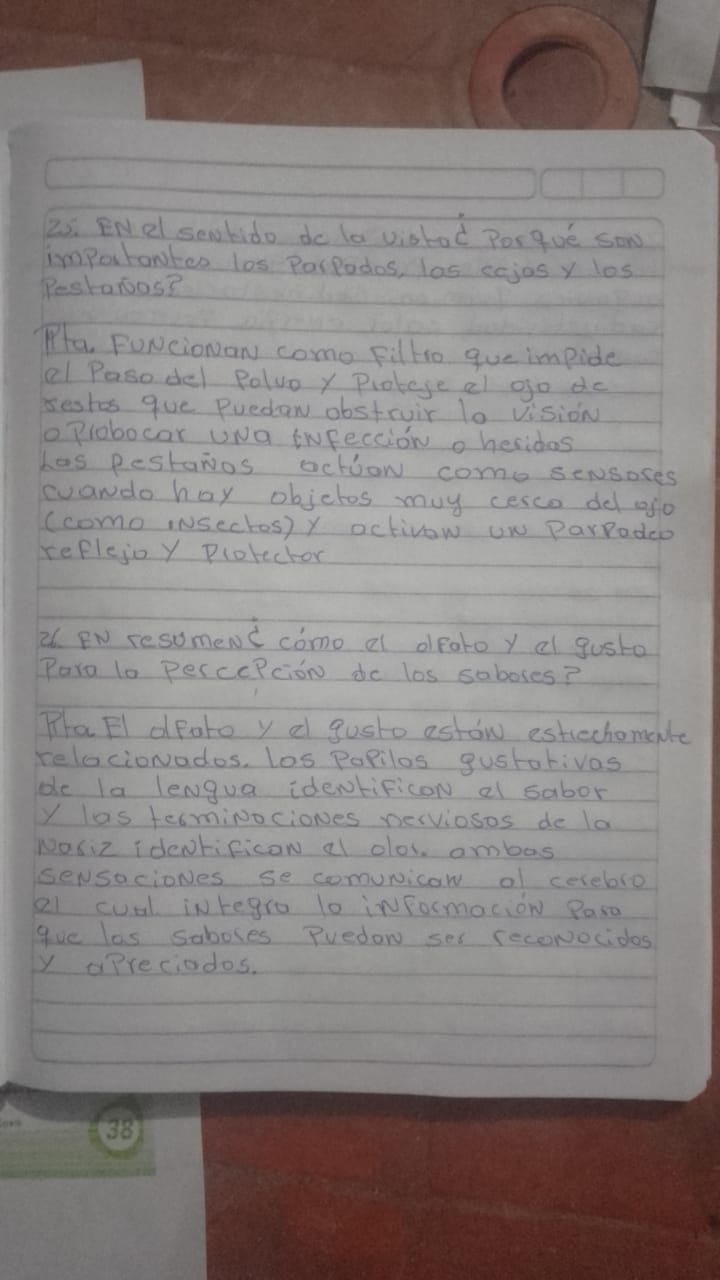 25. EN el sentido de la vista ¿ Porqué son
importantes los Parpados, las cejas y las
Pestañas?
Pta. Funcionan como filtro que impide
el Paso del Polvo y Proteje el ojo de
restos que Puedan obstruir la visión
o Probocar una infección o heridas
Las Pestañas actúan como sensores
cuando hay objetos muy cerca del ojo
(como insectos) y activan un Parpadeo
reflejo y Protector
26 EN resumen ¿ cómo el olfato y el gusto
Para la Percepción de los sabores?
Pta El olfato y el gusto están estrechamente
relacionados. las Papilas gustativas
de la lengua identifican el sabor
y las terminaciones nerviosas de la
Nariz identifican el olor. ambas
sensaciones se comunican al cerebro
el cual integra la información Para
que los sabores Puedan ser reconocidos
y apreciados.
38